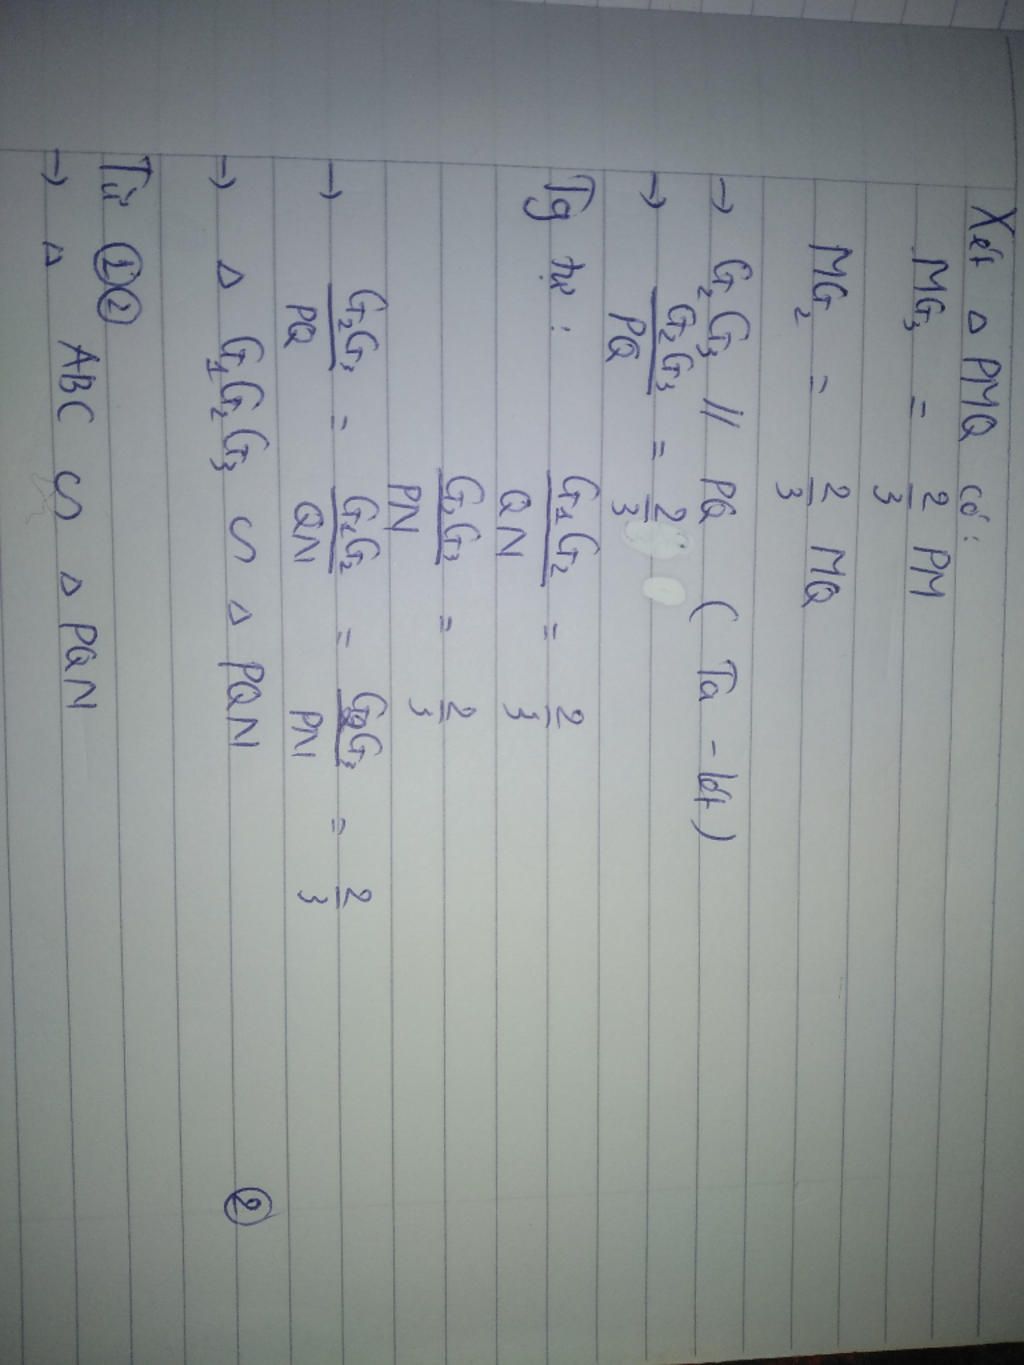 Xét △ PMQ có:
MG₃ = 2/3 PM
MG₂ = 2/3 MQ
→ G₂G₃ // PQ (Ta-lét)
→ G₂G₃/PQ = 2/3
Tg tự: G₁G₂/QN = 2/3
G₁G₃/PN = 2/3
→ G₂G₃/PQ = G₁G₂/QN = G₁G₃/PN = 2/3
→ △ G₁G₂G₃ ∽ △ PQN ②
Từ ①②
→ △ ABC ∽ △ PQN